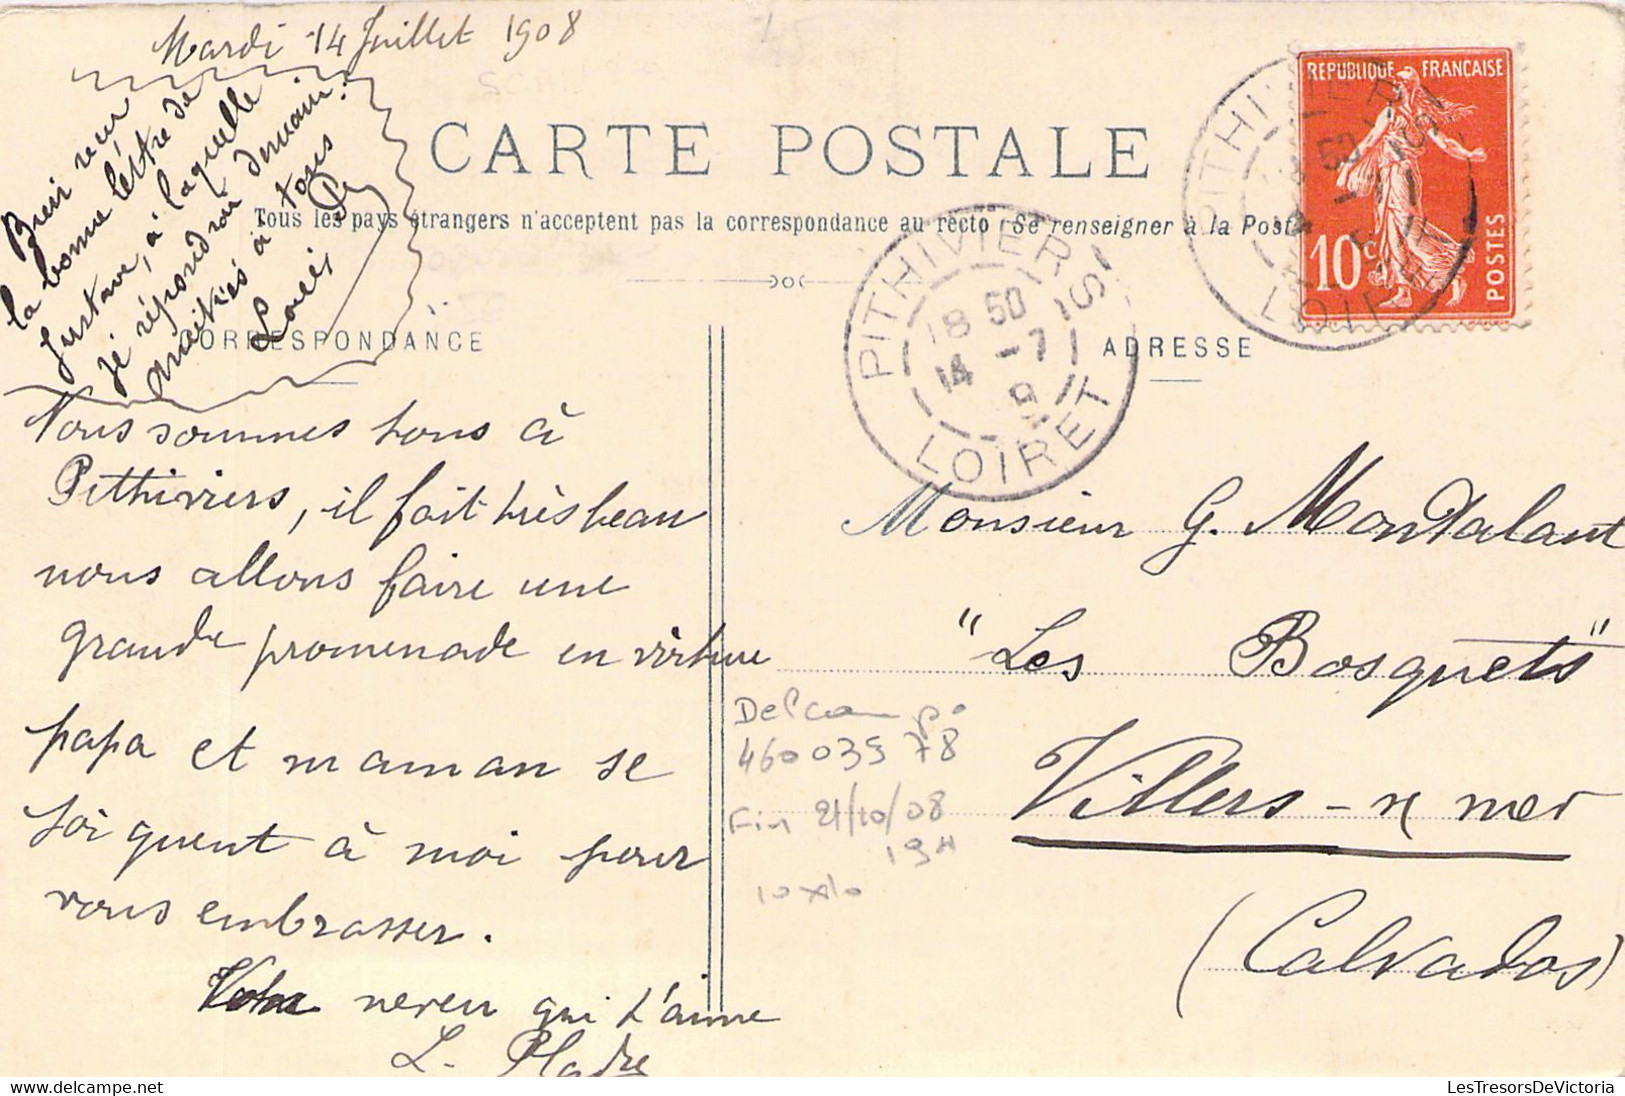 Mardi 14 Juillet 1908
Bien reçu
la bonne léttre de
Gustave, à laquelle
je répondrai demain.
amitiés à tous
Louis P
CARTE POSTALE
Tous les pays étrangers n'acceptent pas la correspondance au recto (Se renseigner à la Poste
CORRESPONDANCE
ADRESSE
REPUBLIQUE FRANÇAISE
10 c
POSTES
PITHIVIERS
LOIRET
PITHIVIERS
18 50
14 - 7
LOIRET
Nous sommes tous à
Pithiviers, il fait très beau
nous allons faire une
grande promenade en voiture
papa et maman se
joignent à moi pour
vous embrasser.
neveu qui t'aime
L.
Monsieur G. Montalant
"Les Bosquets"
Villers-s/ mer
(Calvados)
Delcampe
46003578
Fin 21/10/08
19H
LesTresorsDeVictoria